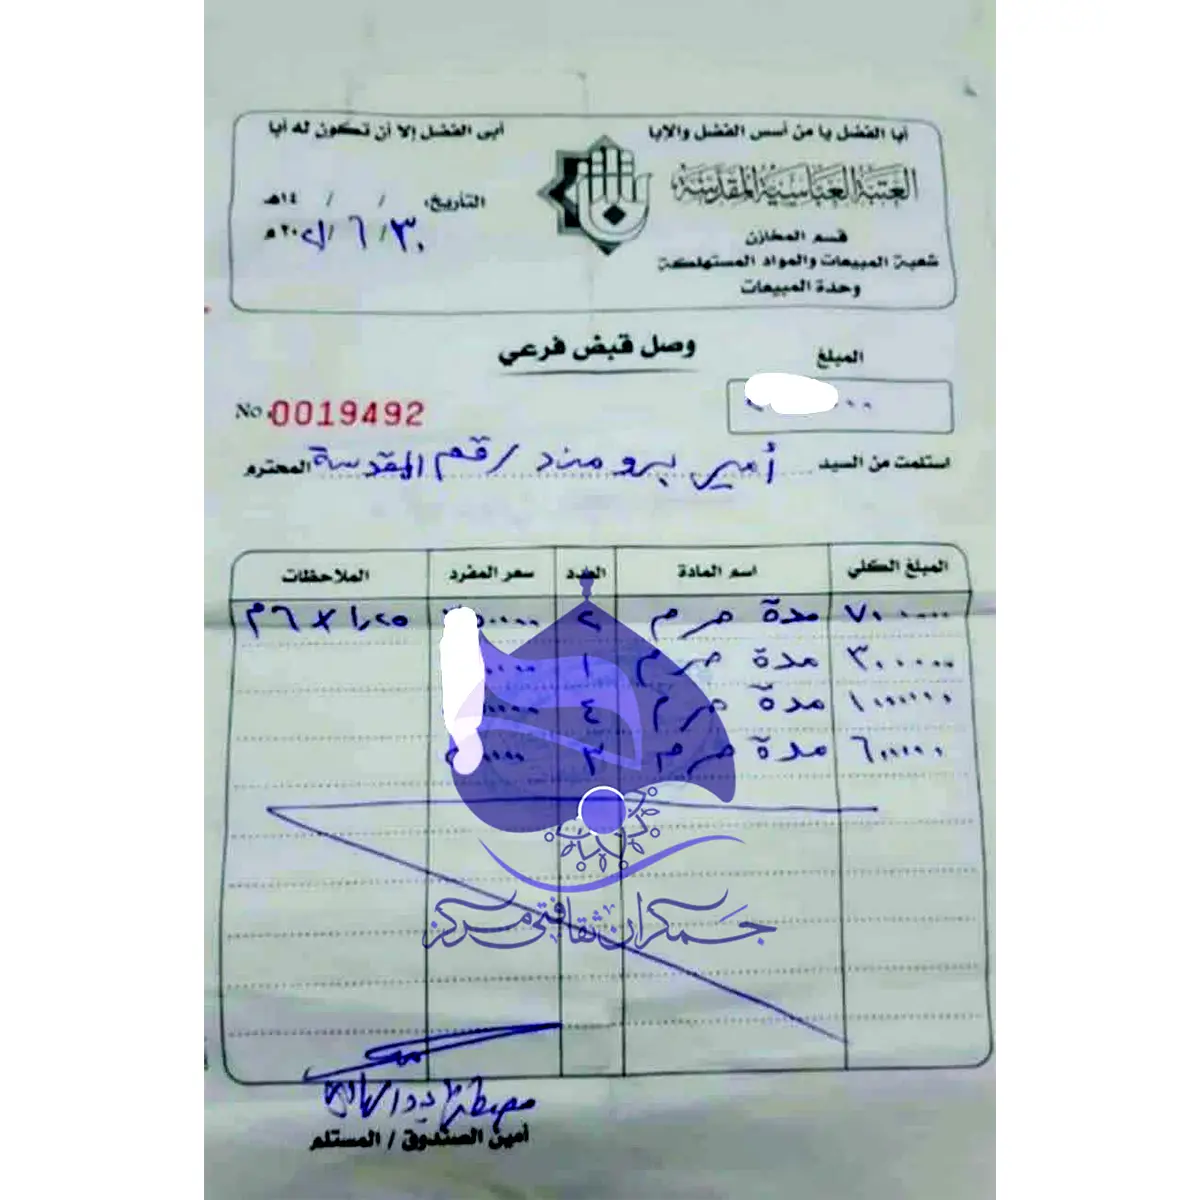 أبا الفضل يا من أسس الفضل والإبا
أبى الفضل إلا أن تكون له أبا
العتبة العباسية المقدسة
قسم المخازن
شعبة المبيعات والمواد المستهلكة
وحدة المبيعات
التأريخ: / / ١٤هـ
٣٠ / ٦ / ٢٠٢م
وصل قبض فرعي
المبلغ
No. 0019492
استلمت من السيد أمير برومند رقم المقدسة المحترم
المبلغ الكلي اسم المادة العدد سعر المفرد الملاحظات
٧٠٠٠٠٠ مدة حرم ٢ ١,٢٥ × ٦م
٣٠٠٠٠٠ مدة حرم ١
مدة حرم ٤
٦٠٠٠٠٠ مدة حرم ٣
جمکران ثقافتی مرکز
أمين الصندوق / المستلم